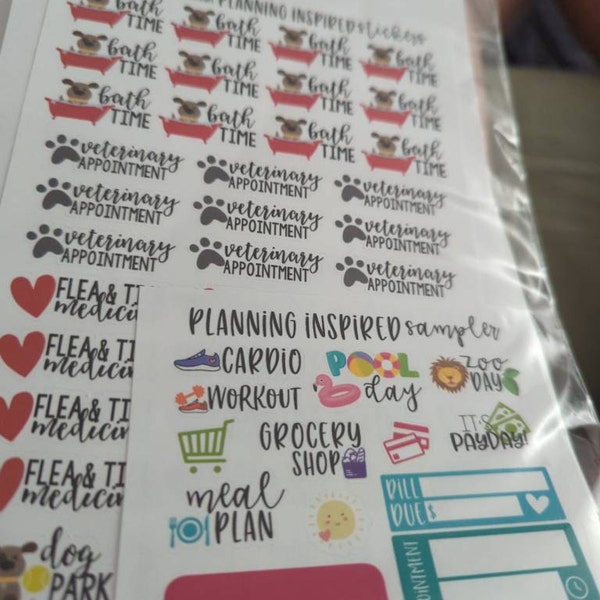 PLANNING INSPIRED stickers
bath TIME bath TIME bath TIME bath TIME
bath TIME bath TIME bath TIME bath TIME
bath TIME bath TIME bath TIME bath TIME
veterinary APPOINTMENT veterinary APPOINTMENT veterinary APPOINTMENT
veterinary APPOINTMENT veterinary APPOINTMENT veterinary APPOINTMENT
veterinary APPOINTMENT veterinary APPOINTMENT veterinary APPOINTMENT
FLEA & TI
medicin
FLEA & TI
medicin
FLEA & TI
medicin
FLEA & TI
medicin
dog
PARK
PLANNING INSPIRED sampler
CARDIO
POOL
day
ZOO
DAY
WORKOUT
GROCERY
SHOP
IT'S
PAYDAY!
meal
PLAN
BILL
DUE $